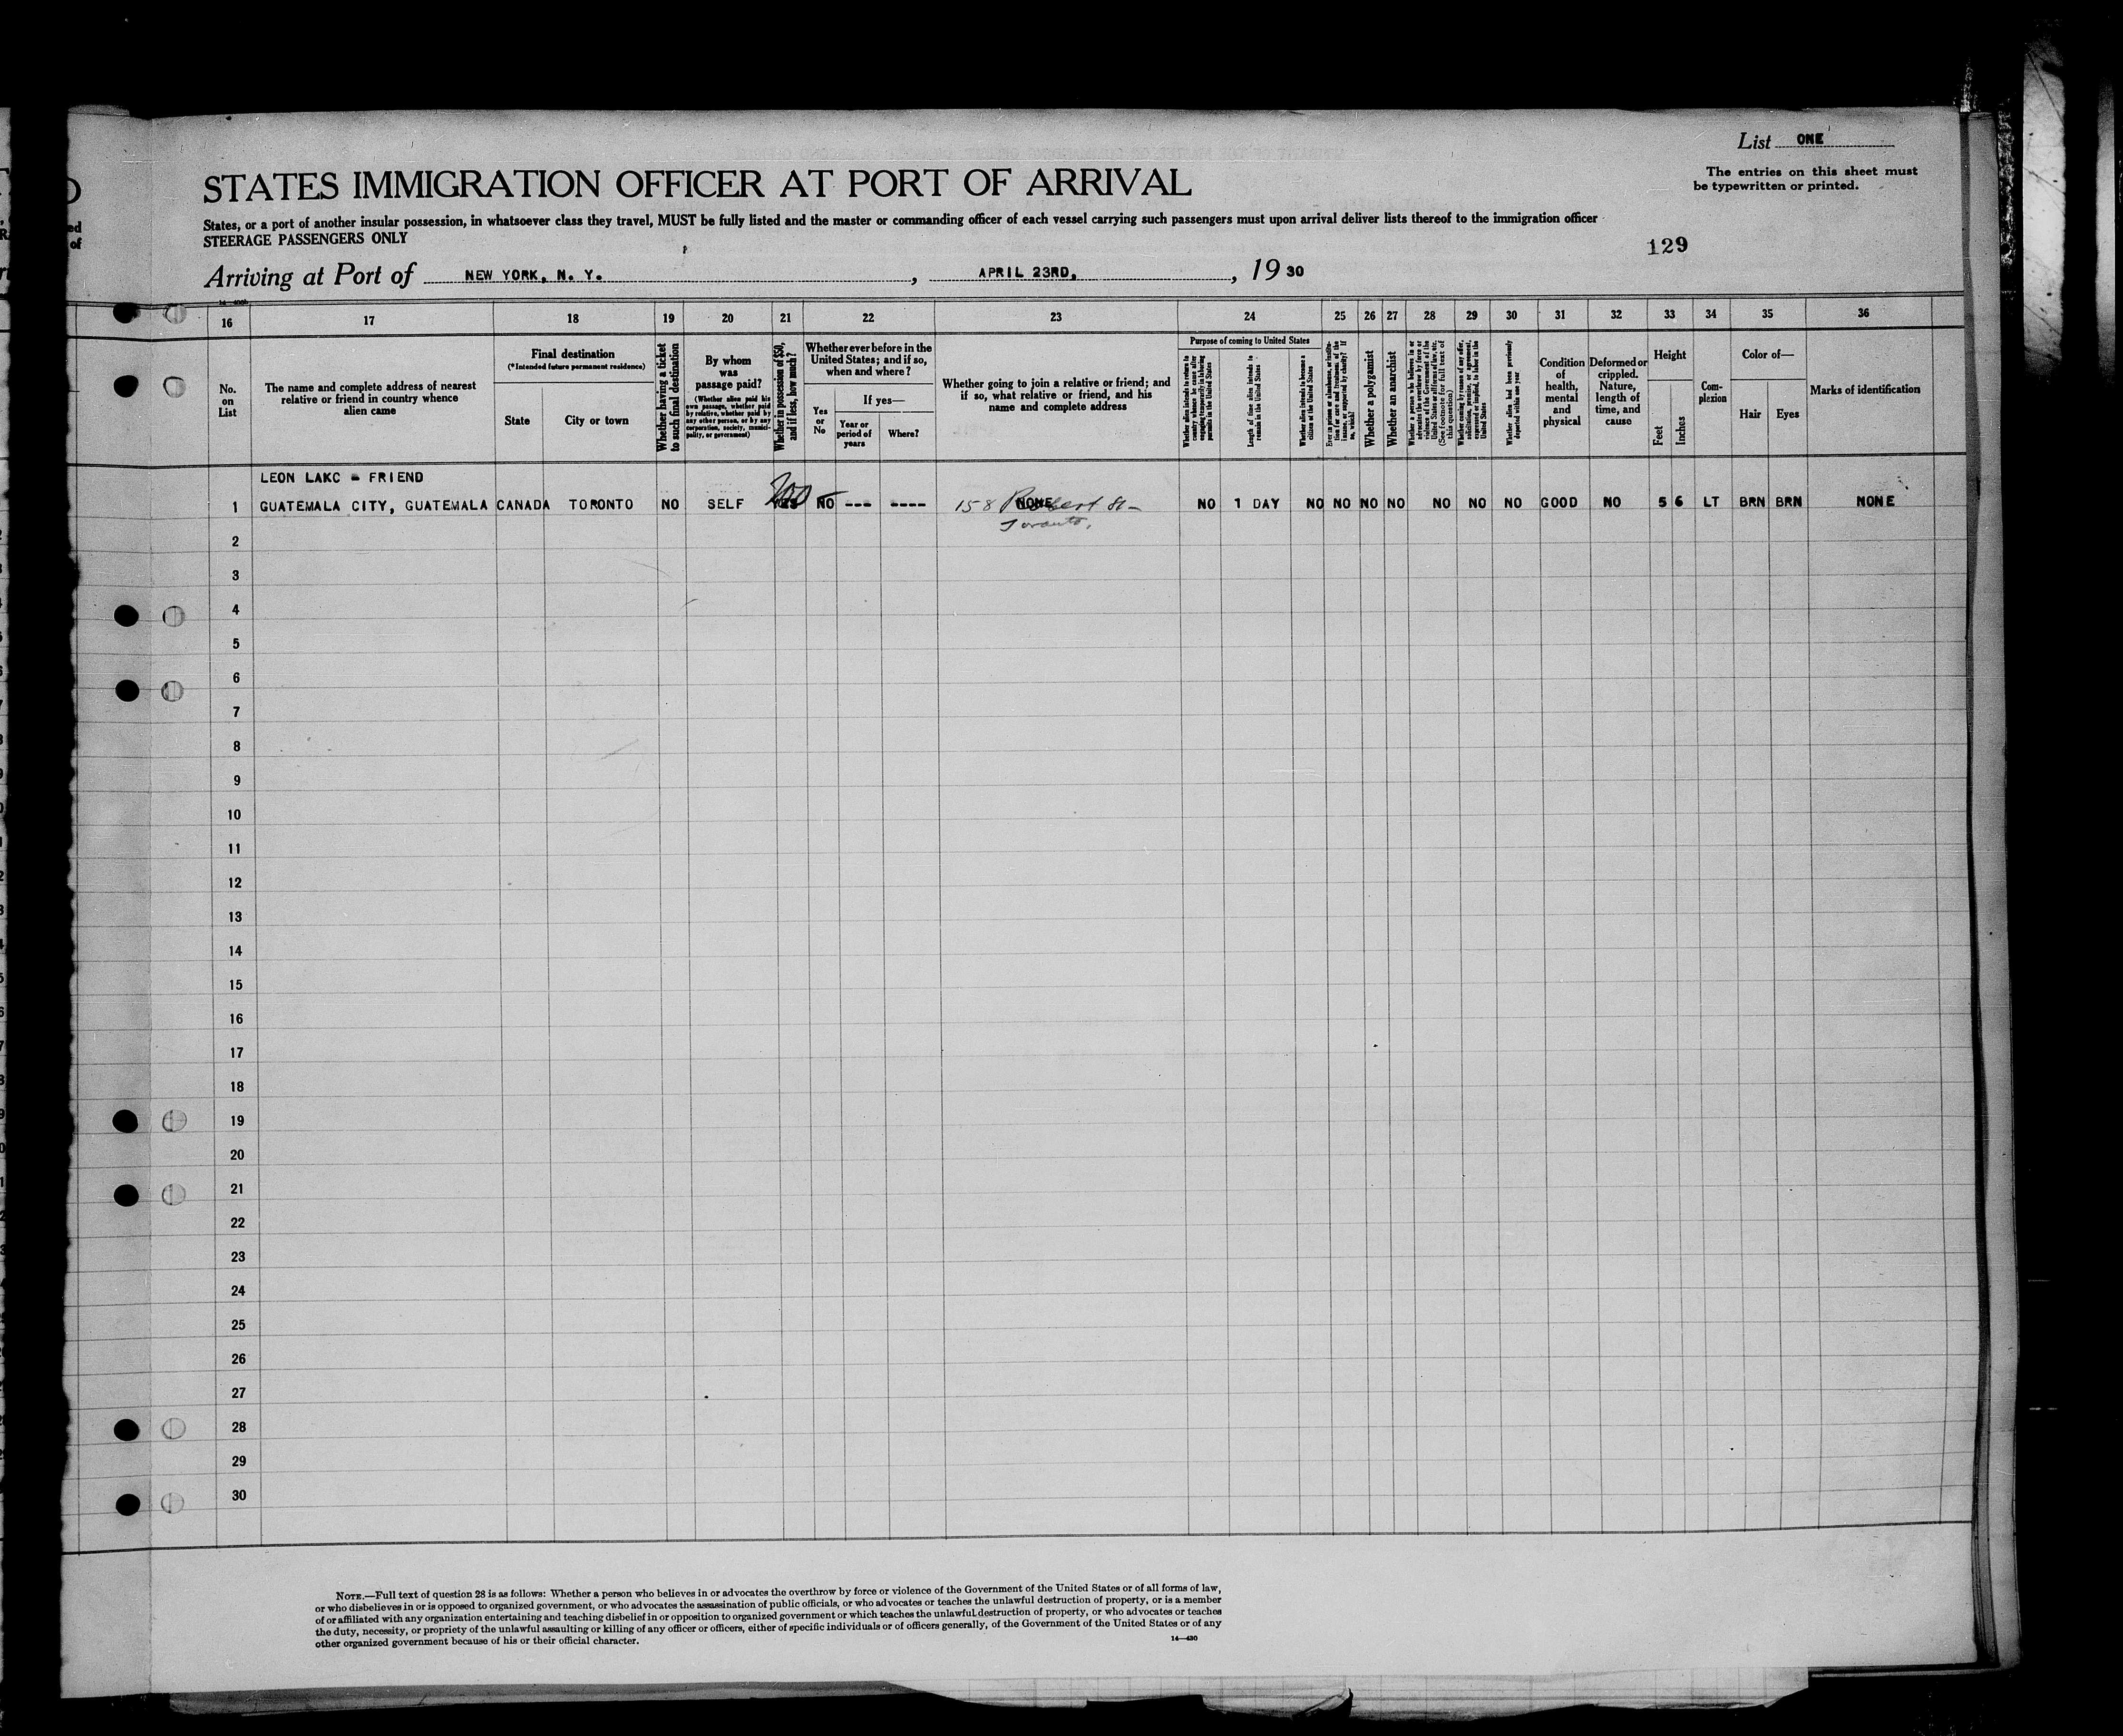 List ONE
The entries on this sheet must
be typewritten or printed.
STATES IMMIGRATION OFFICER AT PORT OF ARRIVAL
States, or a port of another insular possession, in whatsoever class they travel, MUST be fully listed and the master or commanding officer of each vessel carrying such passengers must upon arrival deliver lists thereof to the immigration officer
STEERAGE PASSENGERS ONLY
129
Arriving at Port of NEW YORK, N. Y., APRIL 23RD, 1930
16 17 18 19 20 21 22 23 24 25 26 27 28 29 30 31 32 33 34 35 36
No.
on
List
The name and complete address of nearest
relative or friend in country whence
alien came
Final destination
(*Intended future permanent residence)
State
City or town
Whether having a ticket
to such final destination
By whom
was
passage paid?
(Whether alien paid his
own passage, whether paid
by relative, whether paid by
any other person, or by any
corporation, society, munici-
pality, or government)
Whether in possession of $50,
and if less, how much?
Whether ever before in the
United States; and if so,
when and where?
Yes
or
No
If yes—
Year or
period of
years
Where?
Whether going to join a relative or friend; and
if so, what relative or friend, and his
name and complete address
Purpose of coming to United States
Whether alien intends to return to
country whence he came after
engaging temporarily in laboring
pursuits in the United States
Length of time alien intends to
remain in the United States
Whether alien intends to become a
citizen of the United States
Ever in prison or almshouse, or institu-
tion for care and treatment of the
insane, or supported by charity? If
so, which?
Whether a polygamist
Whether an anarchist
Whether a person who believes in or
advocates the overthrow by force or
violence of the Government of the
United States or all forms of law, etc.
(See footnote for full text of
this question)
Whether coming by reason of any offer,
solicitation, promise, or agreement,
expressed or implied, to labor in the
United States
Whether alien had been previously
deported within one year
Condition
of
health,
mental
and
physical
Deformed or
crippled.
Nature,
length of
time, and
cause
Height
Feet
Inches
Com-
plexion
Color of—
Hair
Eyes
Marks of identification
LEON LAKC - FRIEND
1 GUATEMALA CITY, GUATEMALA CANADA TORONTO NO SELF YES NO --- ---- 158 Robert St- NONE NO 1 DAY NO NO NO NO NO NO NO GOOD NO 5 6 LT BRN BRN NONE
Toronto.
2
3
4
5
6
7
8
9
10
11
12
13
14
15
16
17
18
19
20
21
22
23
24
25
26
27
28
29
30
NOTE.—Full text of question 28 is as follows: Whether a person who believes in or advocates the overthrow by force or violence of the Government of the United States or of all forms of law,
or who disbelieves in or is opposed to organized government, or who advocates the assassination of public officials, or who advocates or teaches the unlawful destruction of property, or is a member
of or affiliated with any organization entertaining and teaching disbelief in or opposition to organized government or which teaches the unlawful destruction of property, or who advocates or teaches
the duty, necessity, or propriety of the unlawful assaulting or killing of any officer or officers, either of specific individuals or of officers generally, of the Government of the United States or of any
other organized government because of his or their official character.
14—430